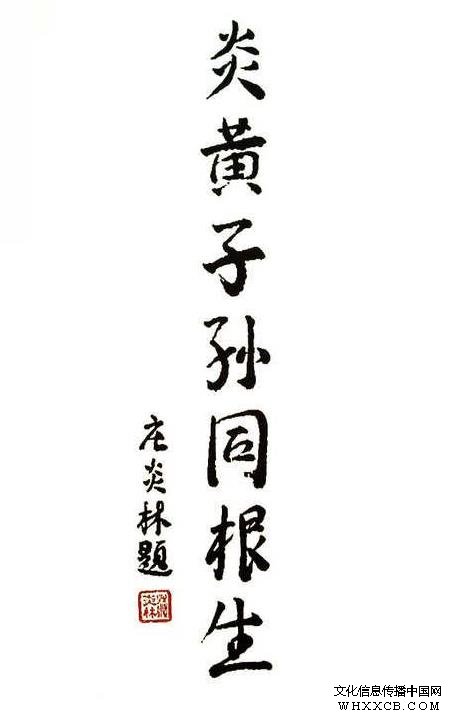 炎黄子孙同根生
庄炎林题
文化信息传播中国网
WHXXCB.COM